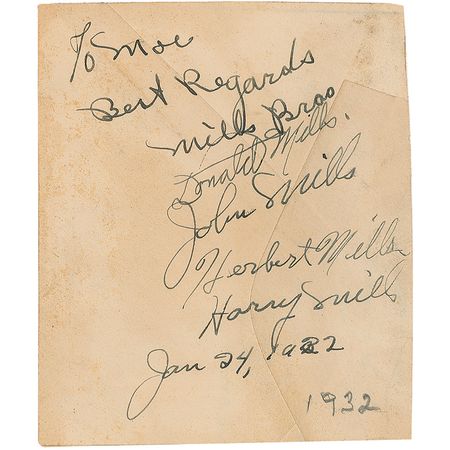 To Moe
Best Regards
Mills Bros
Donald Mills.
John Mills
Herbert Mills
Harry Mills
Jan 24, 1932
1932